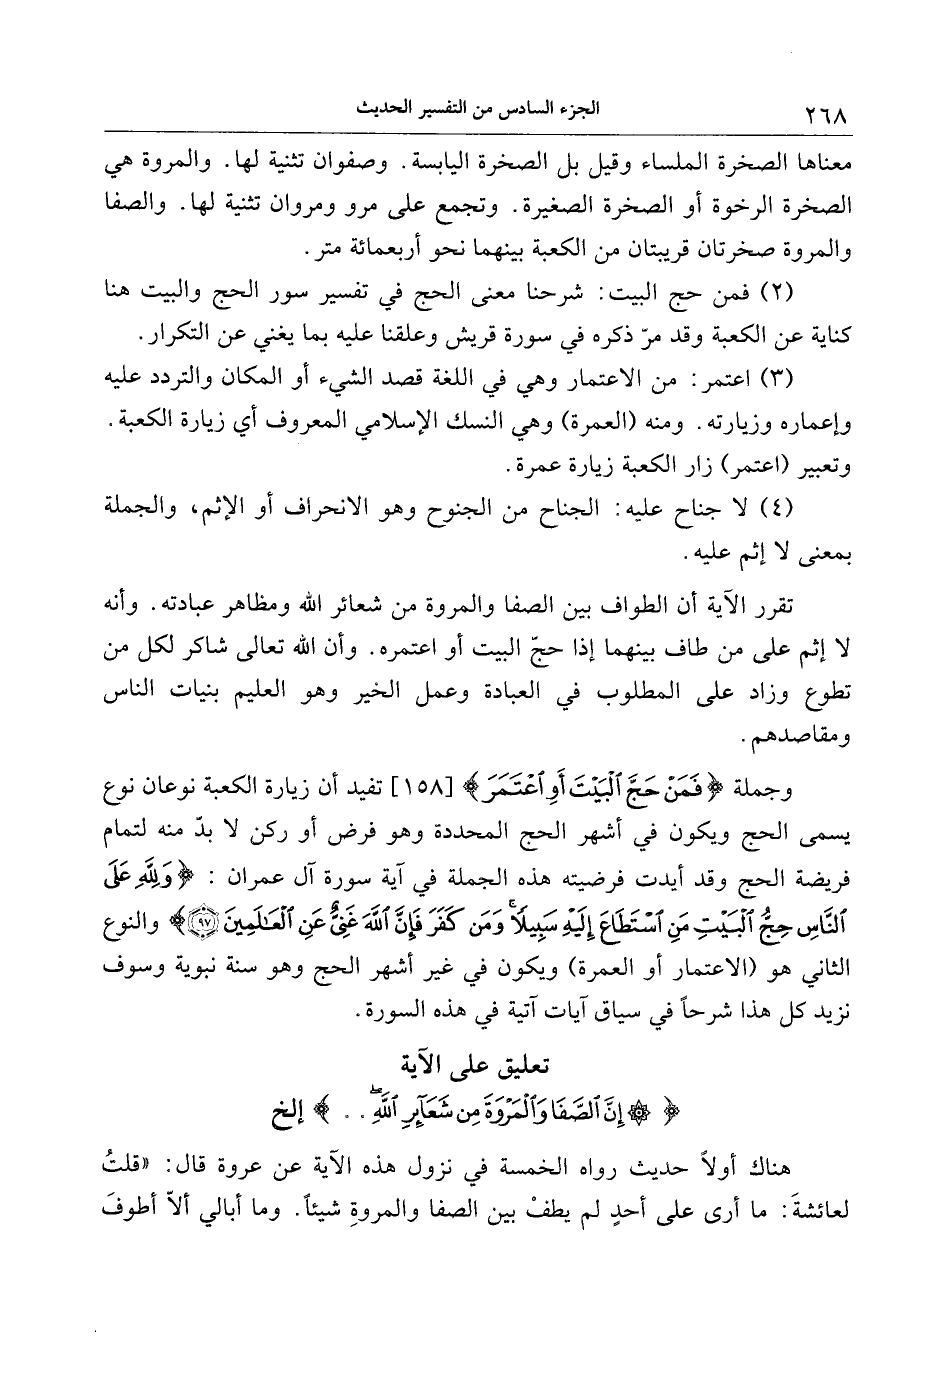 ٢٦٨ الجزء السادس من التفسير الحديث
معناها الصخرة الملساء وقيل بل الصخرة اليابسة. وصفوان تثنية لها. والمروة هي
الصخرة الرخوة أو الصخرة الصغيرة. وتجمع على مرو ومروان تثنية لها. والصفا
والمروة صخرتان قريبتان من الكعبة بينهما نحو أربعمائة متر.
(٢) فمن حج البيت: شرحنا معنى الحج في تفسير سور الحج والبيت هنا
كناية عن الكعبة وقد مرّ ذكره في سورة قريش وعلقنا عليه بما يغني عن التكرار.
(٣) اعتمر: من الاعتمار وهي في اللغة قصد الشيء أو المكان والتردد عليه
وإعماره وزيارته. ومنه (العمرة) وهي النسك الإسلامي المعروف أي زيارة الكعبة.
وتعبير (اعتمر) زار الكعبة زيارة عمرة.
(٤) لا جناح عليه: الجناح من الجنوح وهو الانحراف أو الإثم، والجملة
بمعنى لا إثم عليه.
تقرر الآية أن الطواف بين الصفا والمروة من شعائر الله ومظاهر عبادته. وأنه
لا إثم على من طاف بينهما إذا حجّ البيت أو اعتمره. وأن الله تعالى شاكر لكل من
تطوع وزاد على المطلوب في العبادة وعمل الخير وهو العليم بنيات الناس
ومقاصدهم.
وجملة ﴿فَمَنْ حَجَّ ٱلْبَيْتَ أَوِ ٱعْتَمَرَ﴾ [١٥٨] تفيد أن زيارة الكعبة نوعان نوع
يسمى الحج ويكون في أشهر الحج المحددة وهو فرض أو ركن لا بدّ منه لتمام
فريضة الحج وقد أيدت فرضيته هذه الجملة في آية سورة آل عمران : ﴿وَلِلَّهِ عَلَى
ٱلنَّاسِ حِجُّ ٱلْبَيْتِ مَنِ ٱسْتَطَاعَ إِلَيْهِ سَبِيلًا ۚ وَمَن كَفَرَ فَإِنَّ ٱللَّهَ غَنِىٌّ عَنِ ٱلْعَـٰلَمِينَ ٩٧﴾ والنوع
الثاني هو (الاعتمار أو العمرة) ويكون في غير أشهر الحج وهو سنة نبوية وسوف
نزيد كل هذا شرحاً في سياق آيات آتية في هذه السورة.
تعليق على الآية
﴿ ۞ إِنَّ ٱلصَّفَا وَٱلْمَرْوَةَ مِن شَعَآئِرِ ٱللَّهِ ۖ . . ﴾ إلخ
هناك أولاً حديث رواه الخمسة في نزول هذه الآية عن عروة قال: «قلتُ
لعائشةَ: ما أرى على أحدٍ لم يطفْ بين الصفا والمروةِ شيئاً. وما أبالي ألاّ أطوفَ